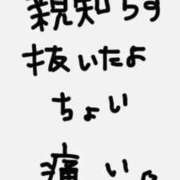 親知らず
抜いたよ
ちょい
痛い。